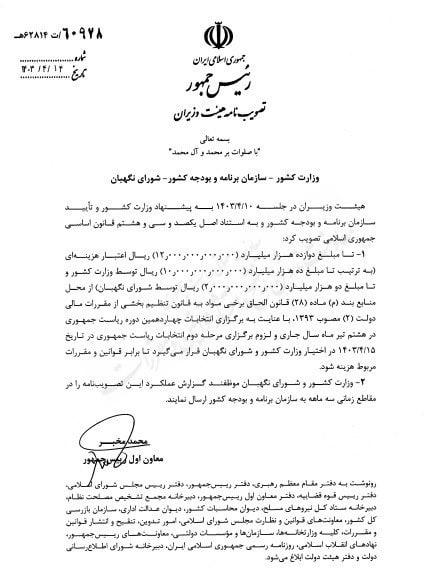 ۶۰۹۷۸/ت ۶۲۸۱۴هـ
شماره
تاریخ ۱۴۰۳/۴/۱۲
جمهوری اسلامی ایران
رئیس جمهور
تصویب نامه هیئت وزیران
بسمه تعالی
"با صلوات بر محمد و آل محمد"
وزارت کشور - سازمان برنامه و بودجه کشور- شورای نگهبان
هیئت وزیران در جلسه ۱۴۰۳/۴/۱۰ به پیشنهاد وزارت کشور و تأیید
سازمان برنامه و بودجه کشور و به استناد اصل یکصد و سی و هشتم قانون اساسی
جمهوری اسلامی تصویب کرد:
۱- تا مبلغ دوازده هزار میلیارد (۱۲٫۰۰۰٫۰۰۰٫۰۰۰٫۰۰۰) ریال اعتبار هزینه‌ای
(به ترتیب تا مبلغ ده هزار میلیارد (۱۰٫۰۰۰٫۰۰۰٫۰۰۰٫۰۰۰) ریال توسط وزارت کشور و
تا مبلغ دو هزار میلیارد (۲٫۰۰۰٫۰۰۰٫۰۰۰٫۰۰۰) ریال توسط شورای نگهبان) از محل
منابع بند (م) ماده (۲۸) قانون الحاق برخی مواد به قانون تنظیم بخشی از مقررات مالی
دولت (۲) مصوب ۱۳۹۳، با عنایت به برگزاری انتخابات چهاردهمین دوره ریاست جمهوری
در هشتم تیر ماه سال جاری و لزوم برگزاری مرحله دوم انتخابات ریاست جمهوری در تاریخ
۱۴۰۳/۴/۱۵ در اختیار وزارت کشور و شورای نگهبان قرار می‌گیرد تا برابر قوانین و مقررات
مربوط هزینه شود.
۲- وزارت کشور و شورای نگهبان موظفند گزارش عملکرد این تصویب‌نامه را در
مقاطع زمانی سه ماهه به سازمان برنامه و بودجه کشور ارسال نمایند.
محمد مخبر
معاون اول رییس‌جمهور
رونوشت به دفتر مقام معظم رهبری، دفتر رییس‌جمهور، دفتر رییس مجلس شورای اسلامی،
دفتر رییس قوه قضاییه، دفتر معاون اول رییس‌جمهور، دبیرخانه مجمع تشخیص مصلحت نظام،
دبیرخانه ستاد کل نیروهای مسلح، دیوان محاسبات کشور، دیوان عدالت اداری، سازمان بازرسی
کل کشور، معاونت‌های قوانین و نظارت مجلس شورای اسلامی، امور تدوین، تنقیح و انتشار قوانین
و مقررات، کلیه وزارتخانه‌ها، سازمان‌ها و مؤسسات دولتی، معاونت‌های رییس‌جمهور،
نهادهای انقلاب اسلامی، روزنامه رسمی جمهوری اسلامی ایران، دبیرخانه شورای اطلاع‌رسانی
دولت و دفتر هیئت دولت ابلاغ می‌شود.